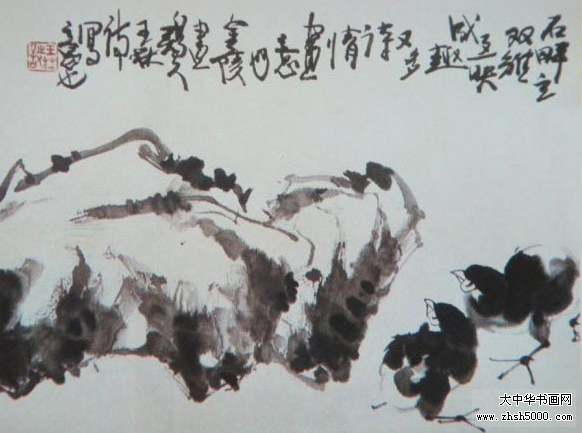 石畔立
双雏
成互映
趣
又多
诗
情
画
意
金陵
画
王秋
写
大中华书画网
www.zhsh5000.com